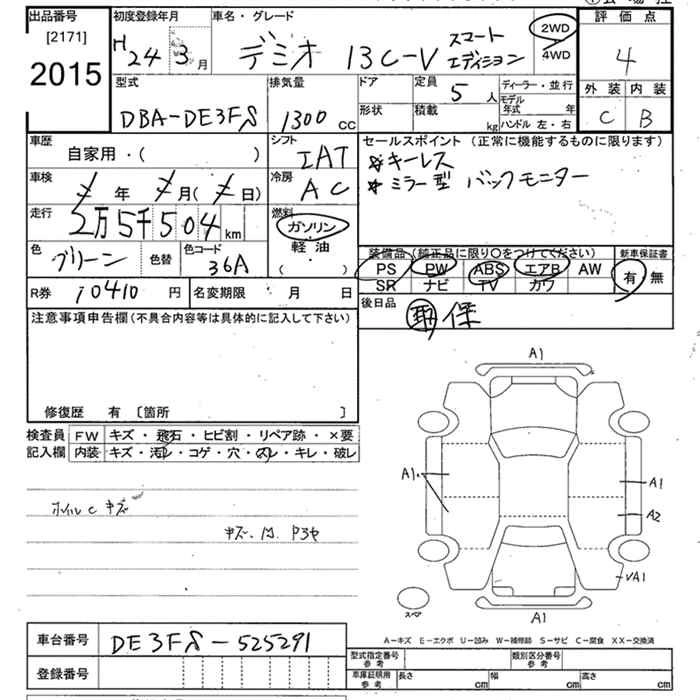 出品番号
[2171]
2015
初度登録年月
H24 3月
車名・グレード
デミオ 13C-V スマート エディション
2WD
4WD
評価点
4
外装 内装
C B
型式
DBA-DE3FS
排気量
1300 cc
ドア
形状
定員
5人
積載
kg
ディーラー・並行
モデル年式 年
ハンドル 左・右
車歴
自家用・( )
シフト
IAT
セールスポイント (正常に機能するものに限ります)
※キーレス
※ミラー型 バックモニター
車検
年 月( 日)
冷房
AC
走行
2万5千504km
燃料
ガソリン
軽油
( )
色
グリーン
色替
色コード
36A
装備品(純正品に限り〇をつけてください)
PS PW ABS エアB AW
SR ナビ TV カワ
新車保証書
有 無
R券 10410 円
名変期限 月 日
後日品
取 保
注意事項申告欄(不具合内容等は具体的に記入して下さい)
修復歴 有 〔箇所 〕
検査員
記入欄
FW キズ・飛石・ヒビ割・リペア跡・×要
内装 キズ・汚レ・コゲ・穴・スレ・キレ・破レ
ホイルC キズ
A1
A1
A1
A2
A1
A1
スペア
A-キズ E-エクボ U-凹み W-補修跡 S-サビ C-腐食 XX-交換済
車台番号
DE3FS-525291
登録番号
型式指定番号
参考
類別区分番号
参考
車庫証明用
参考
長さ cm
幅 cm
高さ cm